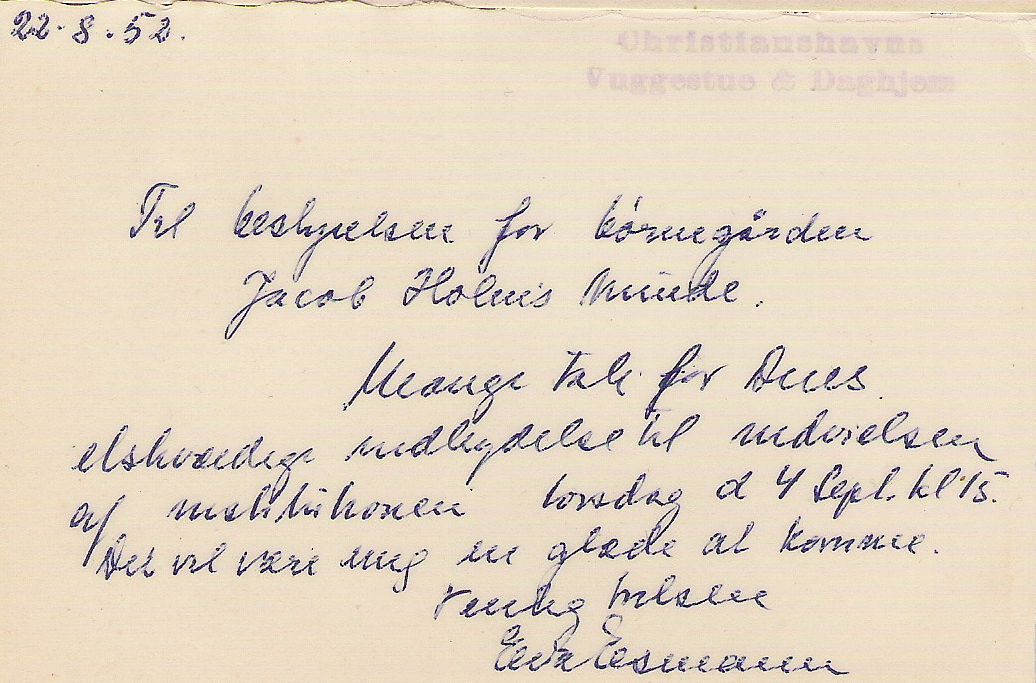 22.8.52.
Christianshavns
Vuggestue & Daghjem
Til bestyrelsen for börnegården
Jacob Holms Minde.
Mange tak for Deres
elskværdige indbydelse til indvielsen
af institutionen torsdag d 4 Sept. kl 15.
Det vil være mig en glæde at komme.
Venlig hilsen
Eva Eismann